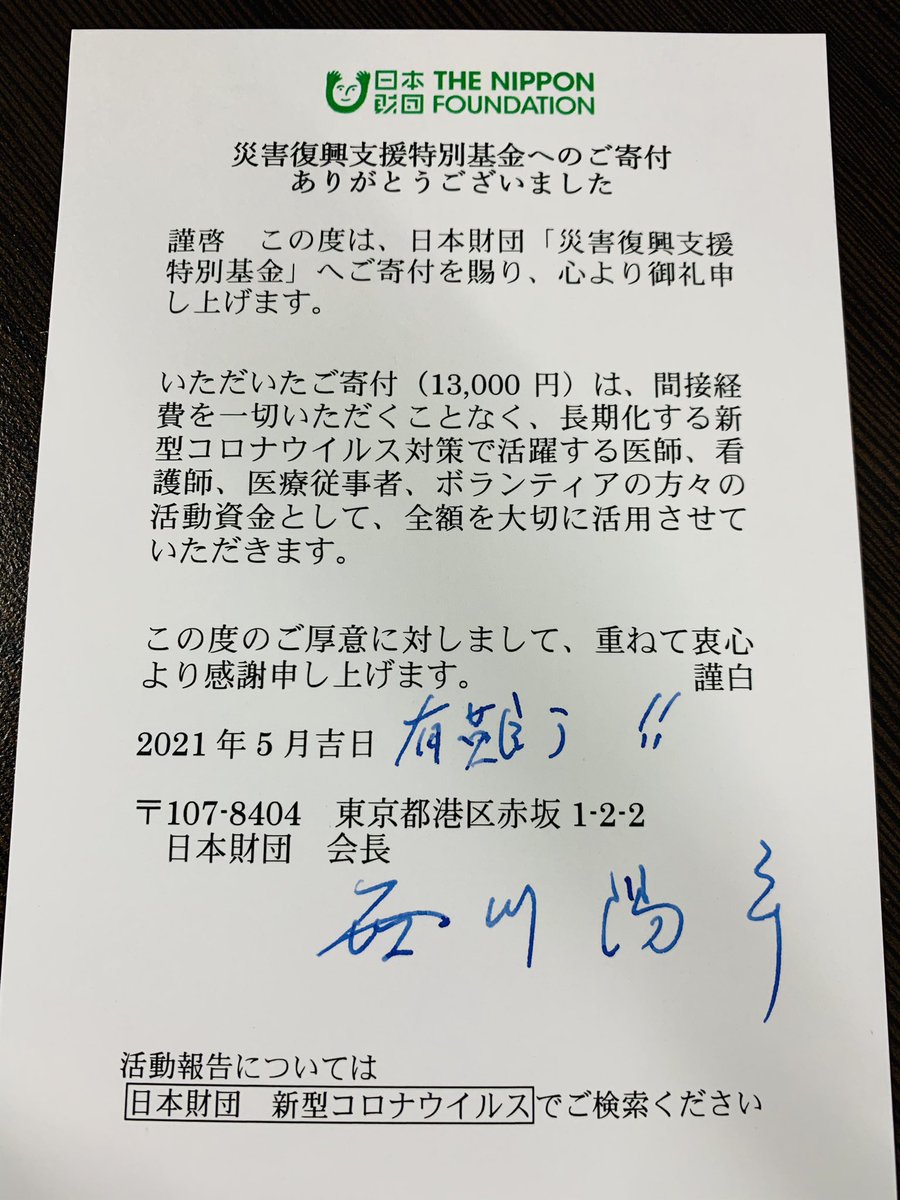 日本 THE NIPPON
財団 FOUNDATION
災害復興支援特別基金へのご寄付
ありがとうございました
謹啓　この度は、日本財団「災害復興支援
特別基金」へご寄付を賜り、心より御礼申
し上げます。
いただいたご寄付（13,000 円）は、間接経
費を一切いただくことなく、長期化する新
型コロナウイルス対策で活躍する医師、看
護師、医療従事者、ボランティアの方々の
活動資金として、全額を大切に活用させて
いただきます。
この度のご厚意に対しまして、重ねて衷心
より感謝申し上げます。　謹白
2021 年 5 月吉日 有難う !!
〒107-8404　東京都港区赤坂 1-2-2
日本財団　会長
笹川陽平
活動報告については
日本財団　新型コロナウイルスでご検索ください